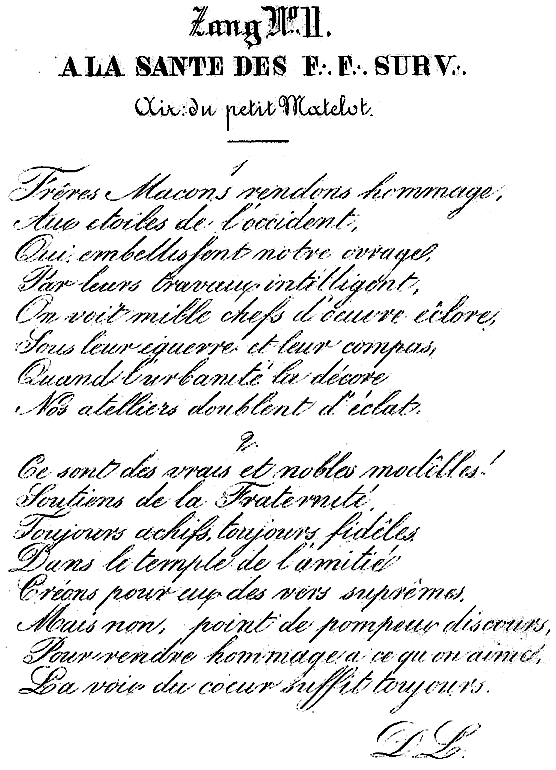 Zang No. 11.
A LA SANTE DES F∴ F∴ SURV∴
Air: du petit Matelot.
1
Frères Macons rendons hommage,
Aux etoiles de l'occident,
Qui embellissent notre ovrage,
Par leurs travaux intilligent,
On voit mille chefs d'oeuvre éclore,
Sous leur équerre et leur compas,
Quand l'urbanité la décore
Nos atelliers doublent d'éclat.
2
Ce sont des vrais et nobles modèlles!
Soutiens de la Fraternité,
Toujours achifs, toujours fidèles
Dans le temple de l'amitié
Créons pour eux des vers suprêmes,
Mais non, point de pompeux discours,
Pour rendre hommage a ce qu'on aime,
La voix du coeur suffit toujours.
D L.